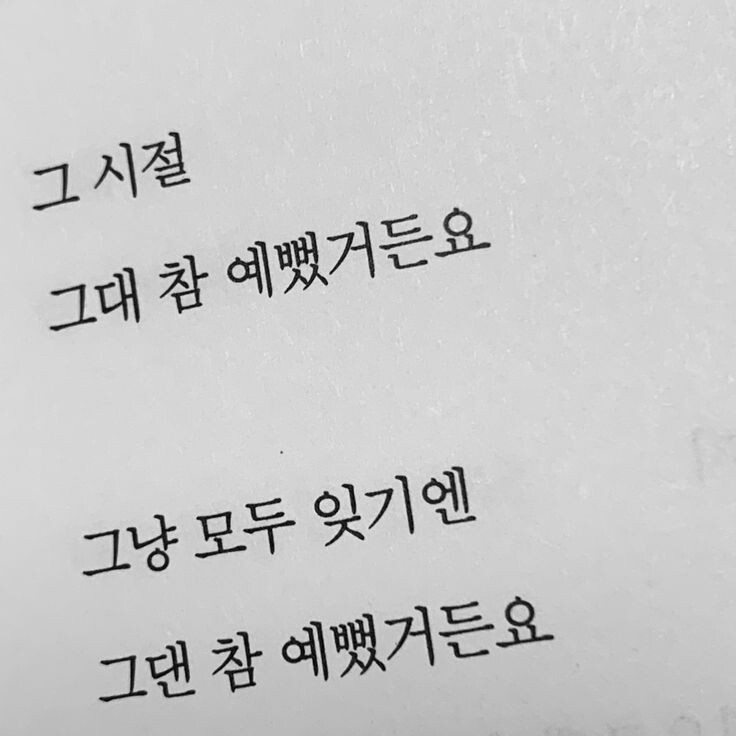 그 시절
그대 참 예뻤거든요
그냥 모두 잊기엔
그댄 참 예뻤거든요